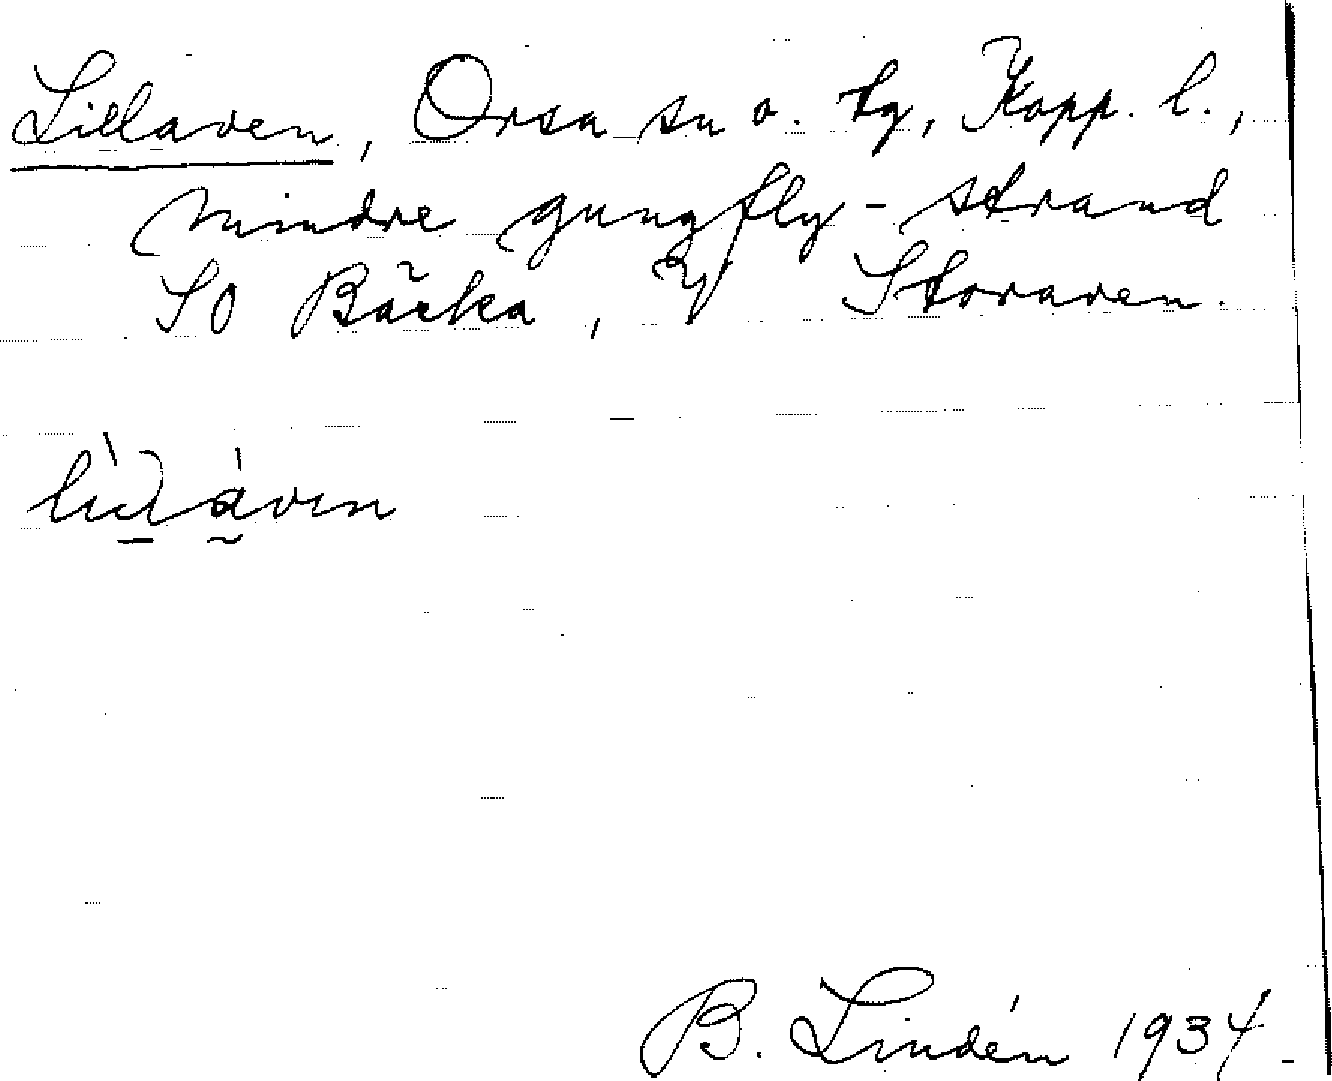 Lillaven, Orsa sn o. tg, Kopp. l.,
mindre gungfly-strand
SO Bäcka, Storaven.
B. Lindén 1934